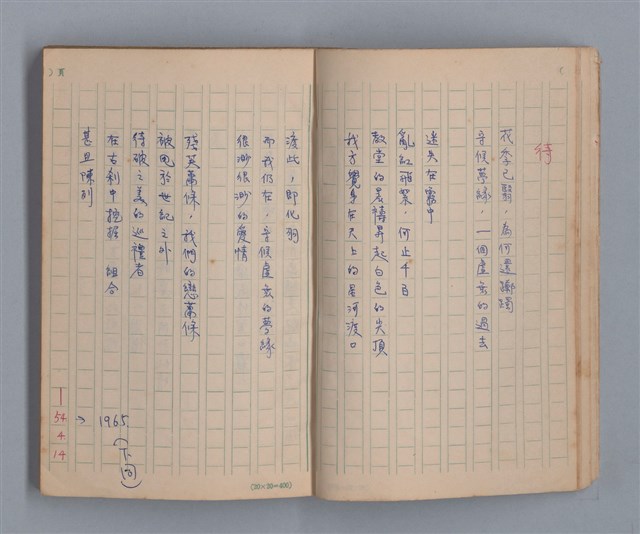 待
花季已翳，為何還躑躅
守候夢緣，一個虛玄的過去
迷失在霧中
亂紅飛絮，何止千百
教堂的晨禱昇起白色的尖頂
我方覺身在天上的星河渡口
渡此，即化羽
而我仍在，守候虛玄的夢緣
很渺很渺的愛情
殘英蕭條，我們的戀蕭條
被甩於世紀之外
待破之美的巡禮者
在古剎中挖掘 組合
甚且陳列
1965（下同）
54
4
14
頁
(20×20=400)